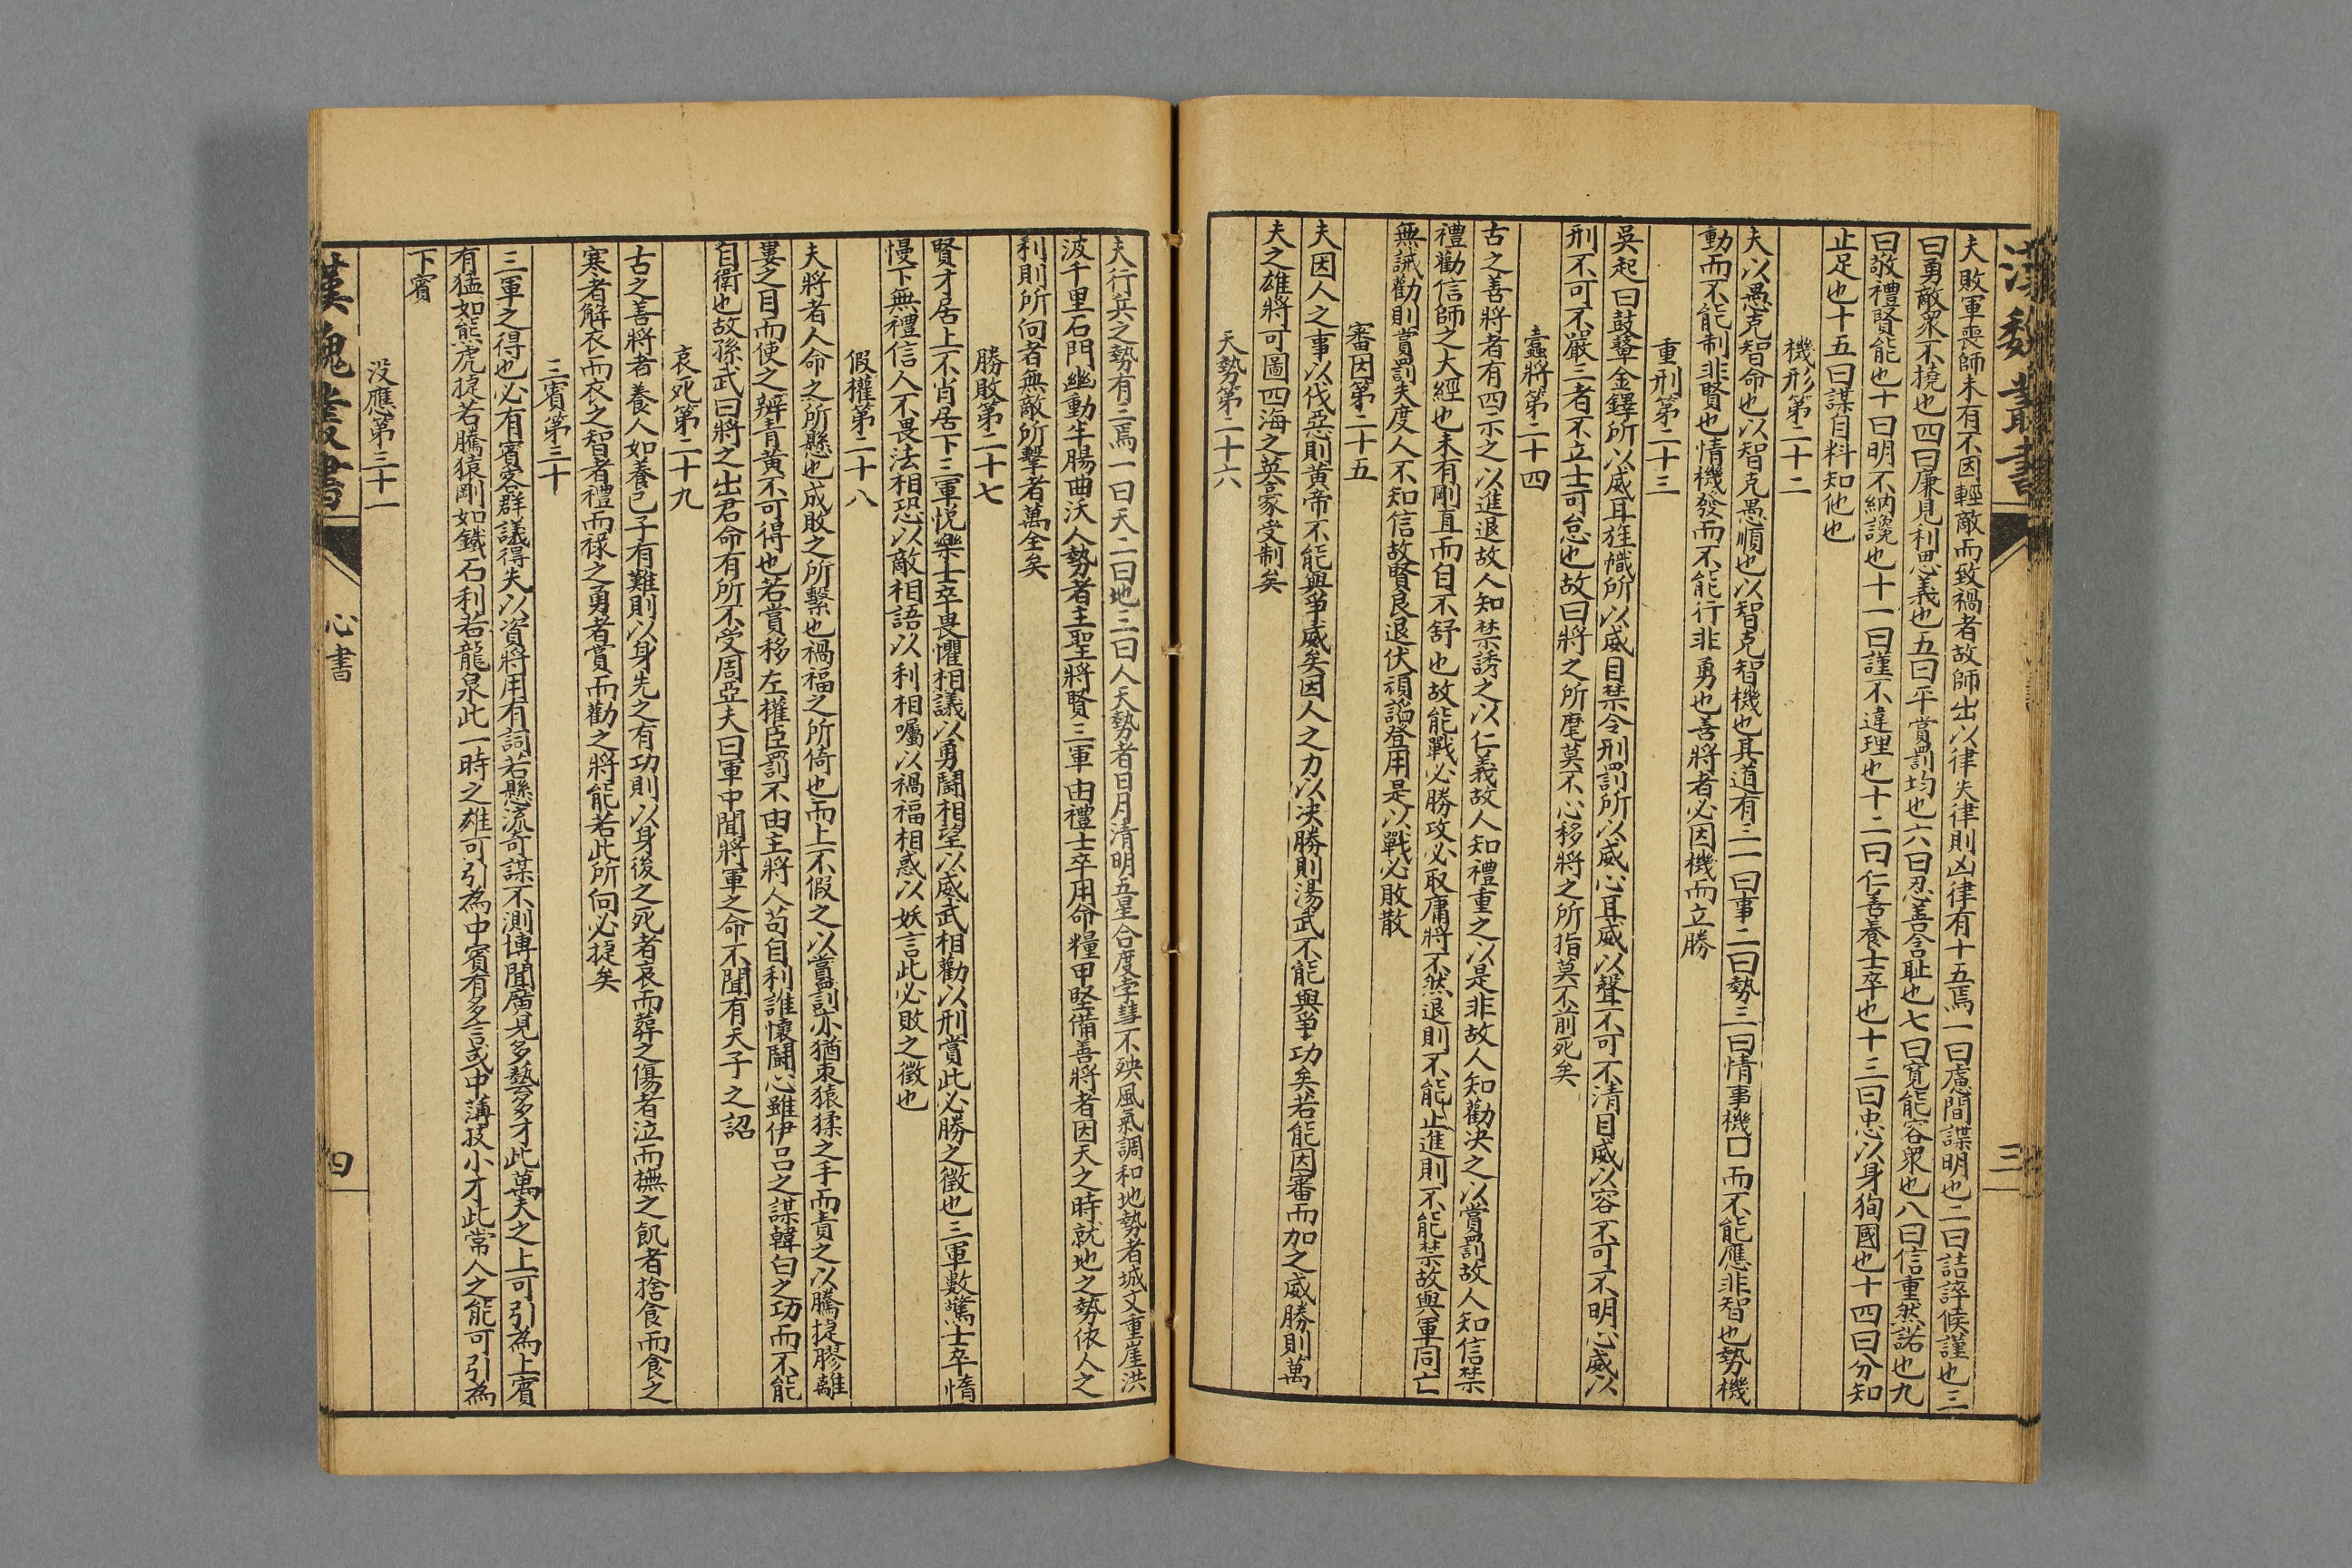 漢魏叢書
三
夫敗軍喪師未有不因輕敵而致禍者故師出以律失律則凶律有十五焉一曰慮間諜明也二曰詰誶候謹也三
曰勇敵衆不撓也四曰廉見利思義也五曰平賞罰均也六曰忍善含耻也七曰寬能容衆也八曰信重然諾也九
曰敬禮賢能也十曰明不納讒也十一曰謹不違理也十二曰仁善養士卒也十三曰忠以身狥國也十四曰分知
止足也十五曰謀自料知他也
機形第二十二
夫以愚克智命也以智克愚順也以智克智機也其道有三一曰事二曰勢三曰情事機口而不能應非智也勢機
動而不能制非賢也情機發而不能行非勇也善將者必因機而立勝
重刑第二十三
吳起曰鼓鼙金鐸所以威耳旌幟所以威目禁令刑罰所以威心耳威以聲不可不清目威以容不可不明心威以
刑不可不嚴三者不立士可怠也故曰將之所麾莫不心移將之所指莫不前死矣
蠹將第二十四
古之善將者有四示之以進退故人知禁誘之以仁義故人知禮重之以是非故人知勸決之以賞罰故人知信禁
禮勸信師之大經也未有剛直而自不舒也故能戰必勝攻必取庸將不然退則不能止進則不能禁故與軍同亡
無誡勸則賞罰失度人不知信故賢良退伏頑諂登用是以戰必敗散
審因第二十五
夫因人之事以伐惡則黃帝不能與爭威矣因人之力以決勝則湯武不能與爭功矣若能因審而加之威勝則萬
夫之雄將可圖四海之英豪受制矣
天勢第二十六
夫行兵之勢有三焉一曰天二曰地三曰人天勢者日月清明五星合度孛彗不殃風氣調和地勢者城文重崖洪
波千里石門幽動牛腸曲沃人勢者主聖將賢三軍由禮士卒用命糧甲堅備善將者因天之時就地之勢依人之
利則所向者無敵所擊者萬全矣
勝敗第二十七
賢才居上不肖居下三軍悅樂士卒畏懼相議以勇鬭相望以威武相勸以刑賞此必勝之徵也三軍數驚士卒惰
慢下無禮信人不畏法相恐以敵相語以利相囑以禍福相惑以妖言此必敗之徵也
假權第二十八
夫將者人命之所懸也成敗之所繫也禍福之所倚也而上不假之以賞罰亦猶束猿猱之手而責之以騰捷膠離
婁之目而使之辨青黃不可得也若賞移左權臣罰不由主將人苟自利誰懷鬭心雖伊吕之謀韓白之功而不能
自衛也故孫武曰將之出君命有所不受周亞夫曰軍中聞將軍之命不聞有天子之詔
哀死第二十九
古之善將者養人如養己子有難則以身先之有功則以身後之死者哀而葬之傷者泣而撫之飢者捨食而食之
寒者解衣而衣之智者禮而祿之勇者賞而勸之將能若此所向必捷矣
三賓第三十
三軍之得也必有賓客群議得失以資將用有詞若懸流奇謀不測博聞廣見多藝多才此萬夫之上可引為上賓
有猛如熊虎捷若騰猿剛如鐵石利若龍泉此一時之雄可引為中賓有多言或中薄技小才此常人之能可引為
下賓
没應第三十一
漢魏叢書
心書
四